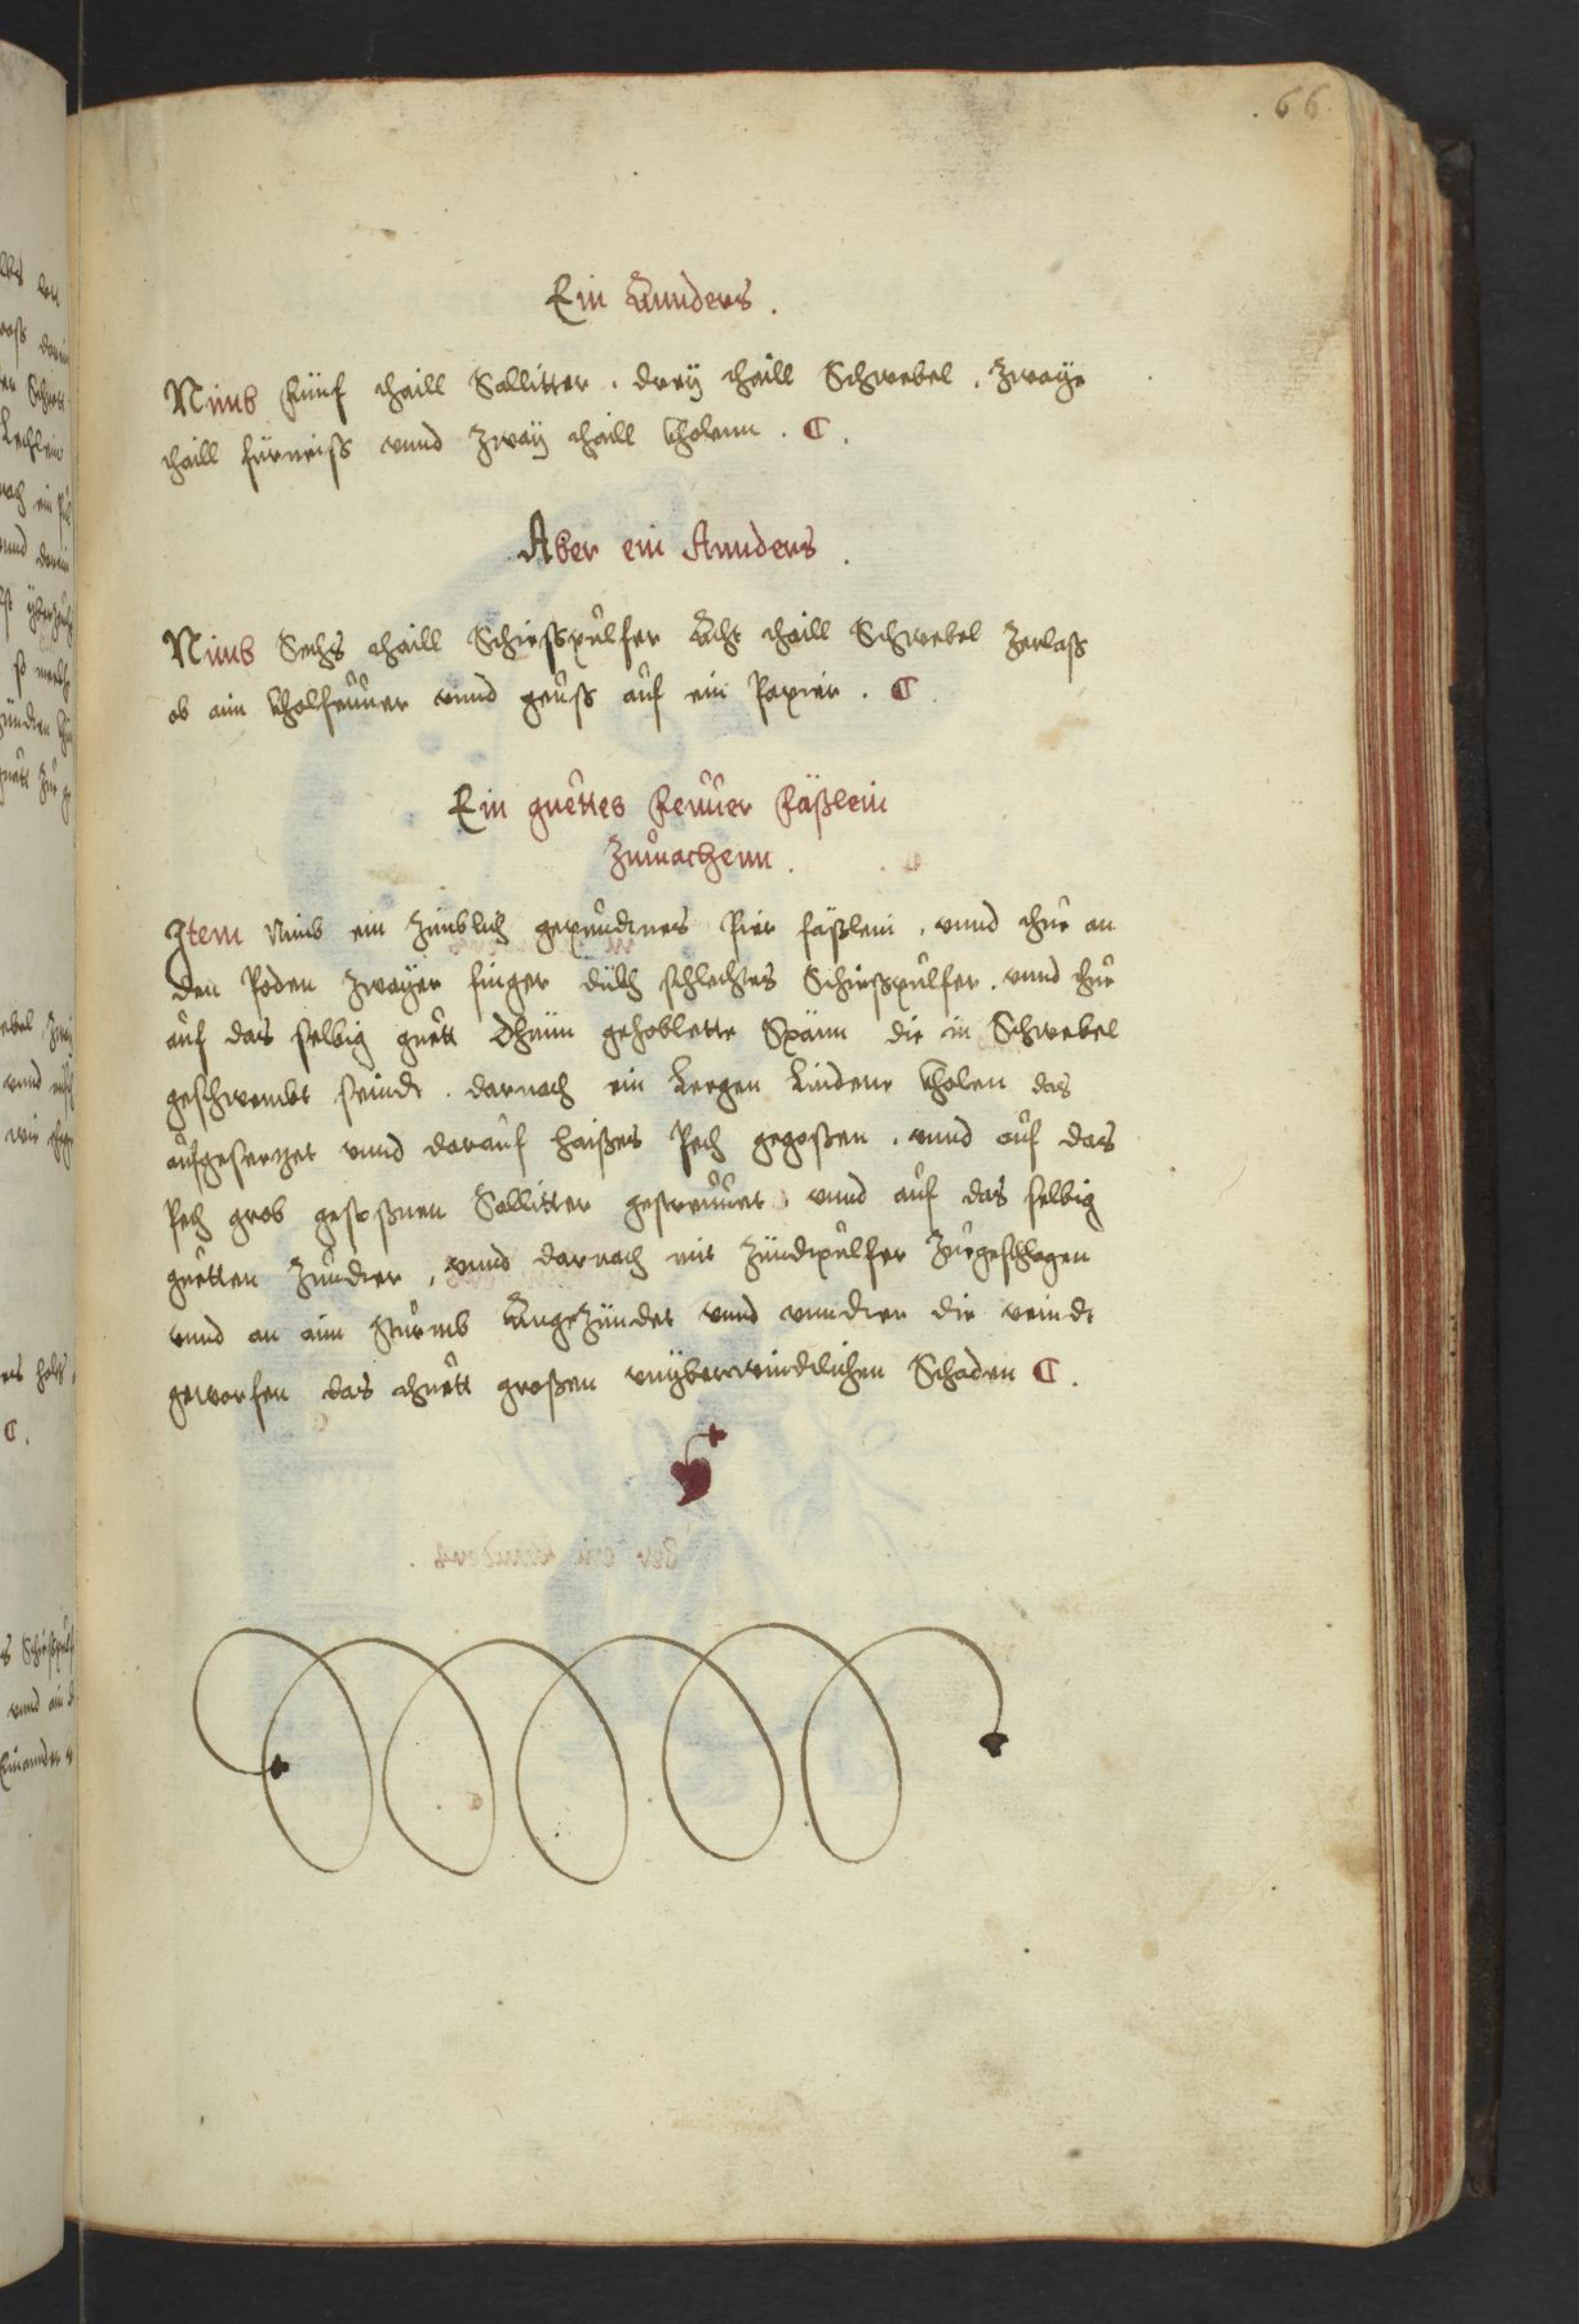 66
Ein Annders.
Nimb Fünf thaill Sallitter. dreÿ thaill Schwebel. Zwaÿe
thaill fürneiss vnnd Zwaÿ thaill kholenn.
Aber ein Annders.
Nimb Sechs thaill Schiesspulfer Acht thaill Schwebel Zerlass
ob aim kholfeuuer vnnd geuss auf ein Papier.
Ein guettes Feuuer Fäßlein
Zumachenn.
Item Nimb ein Zimblich gepundtnes Pier fäßlein, vnnd thue an
den Poden Zwaÿer finger dükh schlechtes Schiesspulfer. vnnd thue
auf das selbig guett Dhrüm gehoblette Spänn die in Schwebel
geschwembt seindt. darnach ein Leegen Lindene kholen das
aufgesetzet vnnd darauf haißes Pech gegoßen. vnnd auf das
Pech grob gestoßnen Sallitter gestreuuet. vnnd auf das selbig
guetten Zundter, vnnd darnach mit Zündtpulfer Zuegeschlagen
vnnd an aim Sturmb Angezündet vnnd vnndter die veindt
geworfen das thuett großen vnÿberwindtlichen Schaden